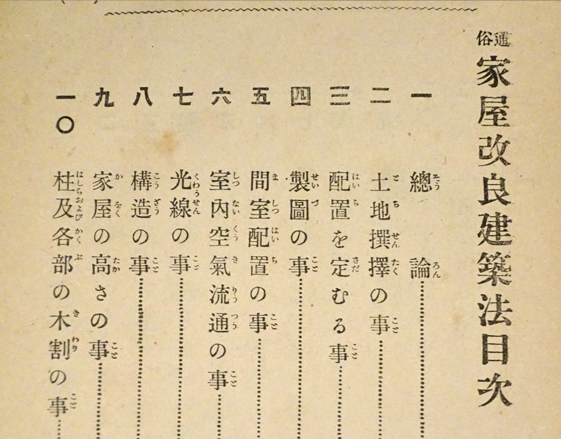 通俗 家屋改良建築法目次
一 總論
二 土地撰擇の事
三 配置を定むる事
四 製圖の事
五 間室配置の事
六 室內空氣流通の事
七 光線の事
八 構造の事
九 家屋の高さの事
一〇 柱及各部の木割の事